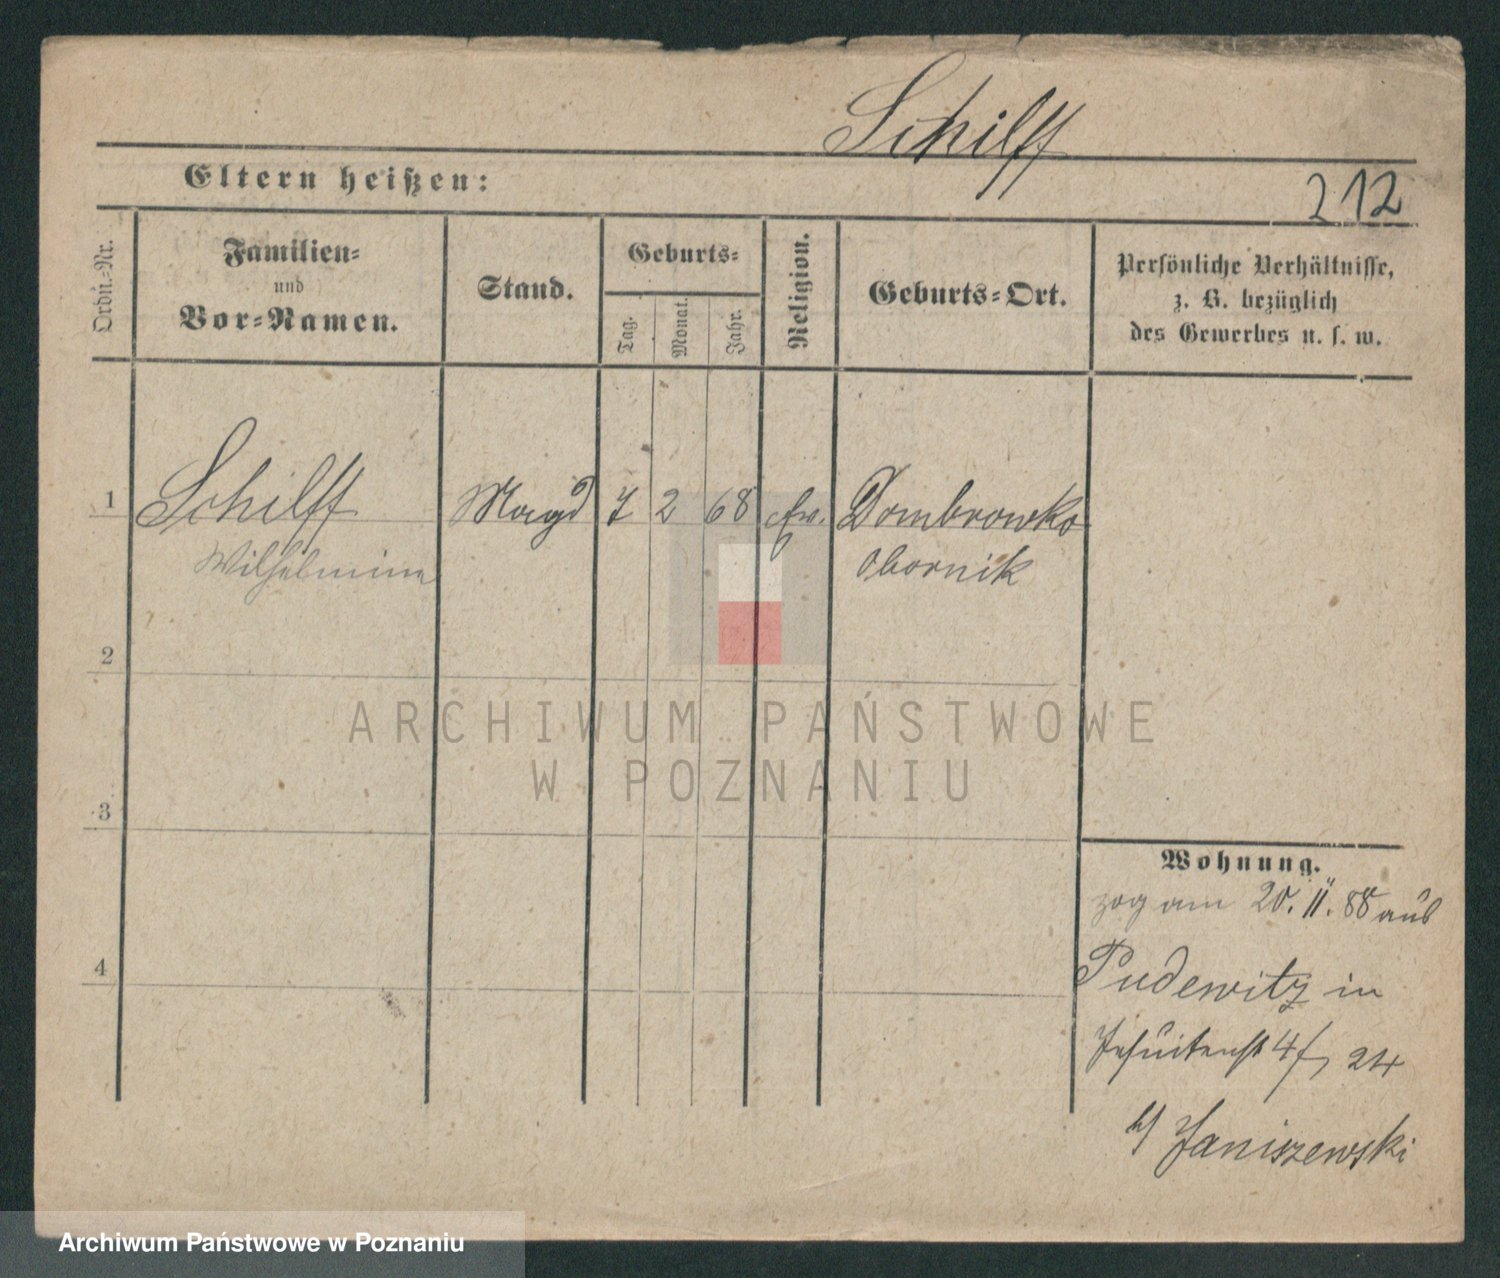 Schilff
Eltern heißen:
212
Ordn.-Nr.
Familien-
und
Vor-Namen.
Stand.
Geburts-
Tag.
Monat.
Jahr.
Religion.
Geburts-Ort.
Persönliche Verhältnisse,
z. B. bezüglich
des Gewerbes u. s. w.
1 Schilff Magd 7 2 68 ev. Dombrowko
Wilhelmine Obornik
2
3
4
Wohnung.
zog am 20. II. 88 aus
Pudewitz in
Jesuitenst 4/ 24
b/ Janiszewski
ARCHIWUM PAŃSTWOWE
W POZNANIU
Archiwum Państwowe w Poznaniu